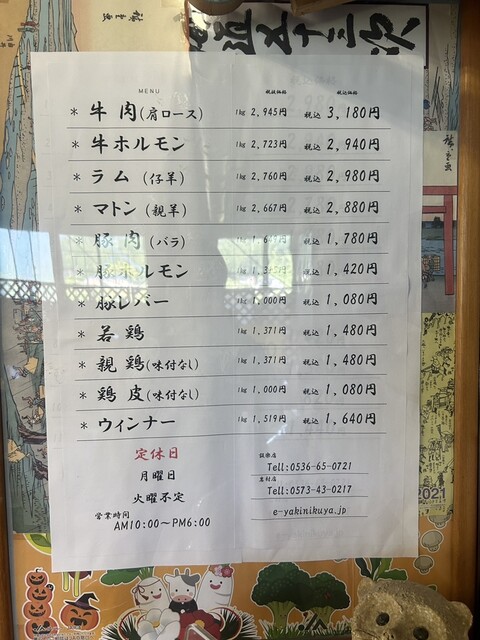 五十三次
MENU 税抜価格 税込価格
* 牛肉(肩ロース) 1kg 2,945円 税込 3,180円
* 牛ホルモン 1kg 2,723円 税込 2,940円
* ラム (仔羊) 1kg 2,760円 税込 2,980円
* マトン (親羊) 1kg 2,667円 税込 2,880円
* 豚肉 (バラ) 1kg 税込 1,780円
* 豚ホルモン 1kg 税込 1,420円
* 豚レバー 1kg 1,000円 税込 1,080円
* 若鶏 1kg 1,371円 税込 1,480円
* 親鶏(味付なし) 1kg 1,371円 税込 1,480円
* 鶏皮(味付なし) 1kg 1,000円 税込 1,080円
* ウィンナー 1kg 1,519円 税込 1,640円
定休日
月曜日
火曜不定
営業時間
AM10:00~PM6:00
設楽店
Tell:0536-65-0721
恵村店
Tell:0573-43-0217
e-yakinikuya.jp
2021